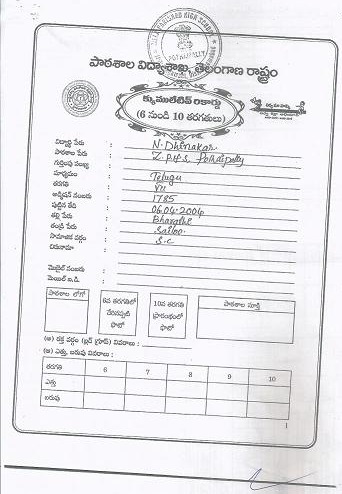 ZILLA PARISHAD HIGH SCHOOL
పాఠశాల విద్యాశాఖ, తెలంగాణ రాష్ట్రం
క్యుములేటివ్ రికార్డు
(6 నుండి 10 తరగతులు)
విద్యార్థి పేరు N. Dhinakar
పాఠశాల పేరు Z.P.H.S
గుర్తింపు సంఖ్య
మాధ్యమం Telugu
తరగతి VII
అడ్మిషన్ నంబరు 1785
పుట్టిన తేది 06.04.2004
తల్లి పేరు Bharathi
తండ్రి పేరు Sailoo
సామాజిక వర్గం S.C
చిరునామా
మొబైల్ నంబరు
మెయిల్ ఐ.డి.
పాఠశాల లోగో
6వ తరగతిలో చేరినప్పటి ఫొటో
10వ తరగతి ప్రారంభంలో ఫొటో
పాఠశాల సూక్తి
(అ) రక్త వర్గం (బ్లడ్ గ్రూప్) వివరాలు :
(ఆ) ఎత్తు, బరువు వివరాలు :
తరగతి 6 7 8 9 10
ఎత్తు
బరువు
1